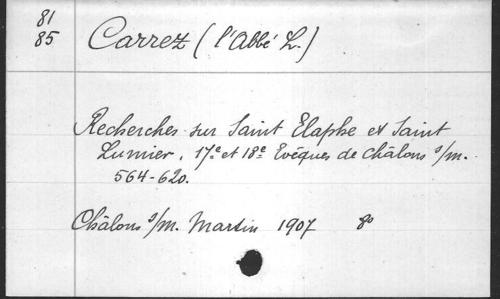 81
85
Carrez (l'Abbé L.)
Recherches sur Saint Elaphe et Saint
Lumier, 17e et 18e Evêques de Châlons s/m.
564-620.
Châlons s/m. Martin 1907 8o